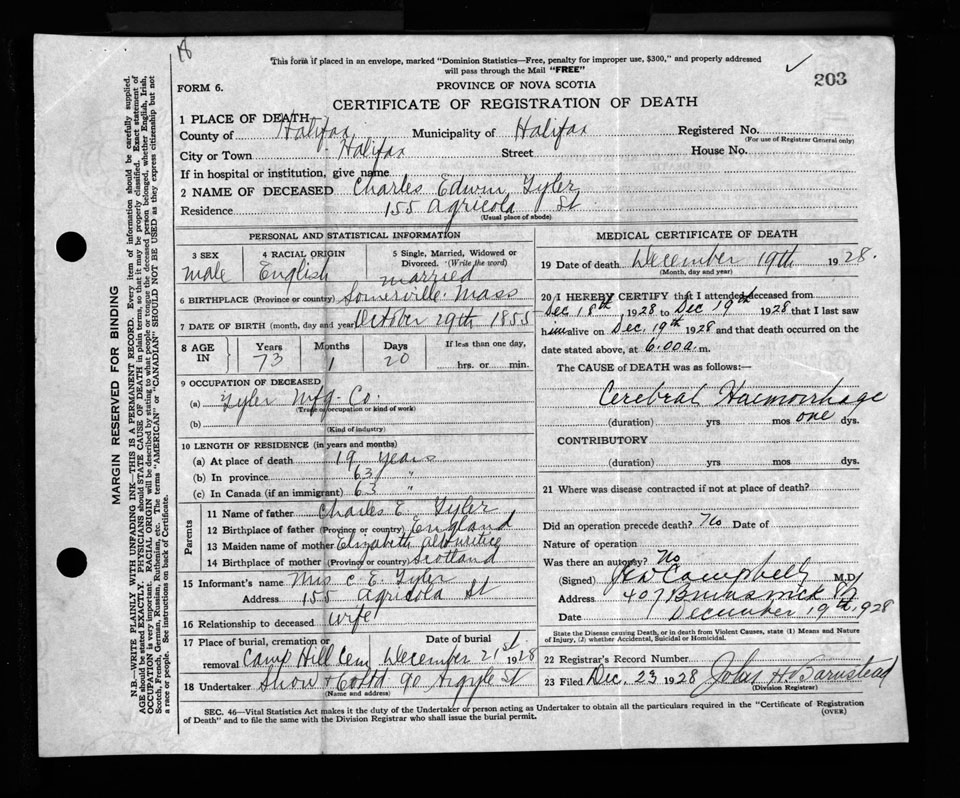 This form if placed in an envelope, marked "Dominion Statistics—Free, penalty for improper use, $300," and properly addressed
will pass through the Mail "FREE"
203
FORM 6.
PROVINCE OF NOVA SCOTIA
CERTIFICATE OF REGISTRATION OF DEATH
1 PLACE OF DEATH
County of Halifax Municipality of Halifax Registered No.
(For use of Registrar General only)
City or Town Halifax Street House No.
If in hospital or institution, give name
2 NAME OF DECEASED Charles Edwin Tyler
Residence 155 Agricola St
(Usual place of abode)
PERSONAL AND STATISTICAL INFORMATION
3 SEX 4 RACIAL ORIGIN 5 Single, Married, Widowed or
Divorced. (Write the word)
Male English married
6 BIRTHPLACE (Province or country) Somerville Mass
7 DATE OF BIRTH (month, day and year) October 29th 1855
8 AGE IN Years Months Days If less than one day,
73 1 20 hrs. or min.
9 OCCUPATION OF DECEASED
(a) Tyler Mfg. Co.
(Trade occupation or kind of work)
(b)
(Kind of industry)
10 LENGTH OF RESIDENCE (in years and months)
(a) At place of death 19 years
(b) In province 63 "
(c) In Canada (if an immigrant) 63 "
Parents
11 Name of father Charles E. Tyler
12 Birthplace of father (Province or country) England
13 Maiden name of mother Elizabeth
14 Birthplace of mother (Province or country) Scotland
15 Informant's name Mrs C. E. Tyler
Address 155 Agricola St
16 Relationship to deceased wife
17 Place of burial, cremation or Date of burial
removal Camp Hill Cem December 21st 1928
18 Undertaker Snow & Co Ltd 90 Argyle St
(Name and address)
MEDICAL CERTIFICATE OF DEATH
19 Date of death December 19th 1928.
(Month, day and year)
20 I HEREBY CERTIFY that I attended deceased from
Dec 18th, 1928 to Dec 19th 1928 that I last saw
him alive on Dec. 19th 1928 and that death occurred on the
date stated above, at 6.00 a. m.
The CAUSE of DEATH was as follows:—
Cerebral Haemorrhage
(duration) yrs mos one dys.
CONTRIBUTORY
(duration) yrs mos dys.
21 Where was disease contracted if not at place of death?
Did an operation precede death? No Date of
Nature of operation
Was there an autopsy? No
(Signed) Campbell M.D.
Address 407 Brunswick St
Date December 19th 1928
State the Disease causing Death, or in death from Violent Causes, state (1) Means and Nature
of Injury, (2) whether Accidental, Suicidal or Homicidal.
22 Registrar's Record Number
23 Filed Dec. 23 1928 John H Barnstead
(Division Registrar)
SEC. 46—Vital Statistics Act makes it the duty of the Undertaker or person acting as Undertaker to obtain all the particulars required in the "Certificate of Registration
of Death" and to file the same with the Division Registrar who shall issue the burial permit.
(OVER)
MARGIN RESERVED FOR BINDING
N.B.—WRITE PLAINLY WITH UNFADING INK—THIS IS A PERMANENT RECORD. Every item of information should be carefully supplied.
AGE should be stated EXACTLY. PHYSICIANS should STATE CAUSE OF DEATH in plain terms, so that it may be properly classified. Exact statement of
OCCUPATION is very important. RACIAL ORIGIN will be described by stating to what people or tongue the deceased person belonged, whether English, Irish,
Scotch, French, German, Russian, Ruthenian, etc. The terms "AMERICAN" or "CANADIAN" SHOULD NOT BE USED as they express citizenship but not
a race or people. See instructions on back of Certificate.